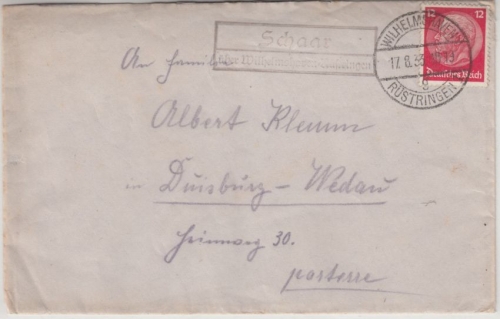 Schaar
über Wilhelmshaven-Rüstringen
WILHELMSHAVEN
17.8.33
g
RÜSTRINGEN
12 12
Deutsches Reich
An Familie
Albert Klemm
in Duisburg-Wedau
30.
parterre